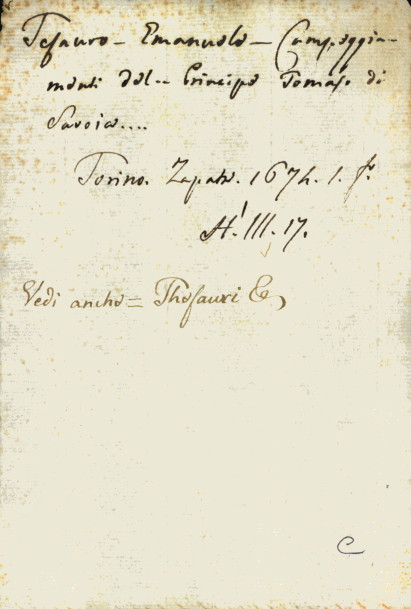 Tesauro - Emanuele - Campeggia-
menti del.. Principe Tomaso di
Savoia....
Torino. Zapata. 1674. 1. fo.
A. III. 17.
Vedi anche = Thesauri E
C